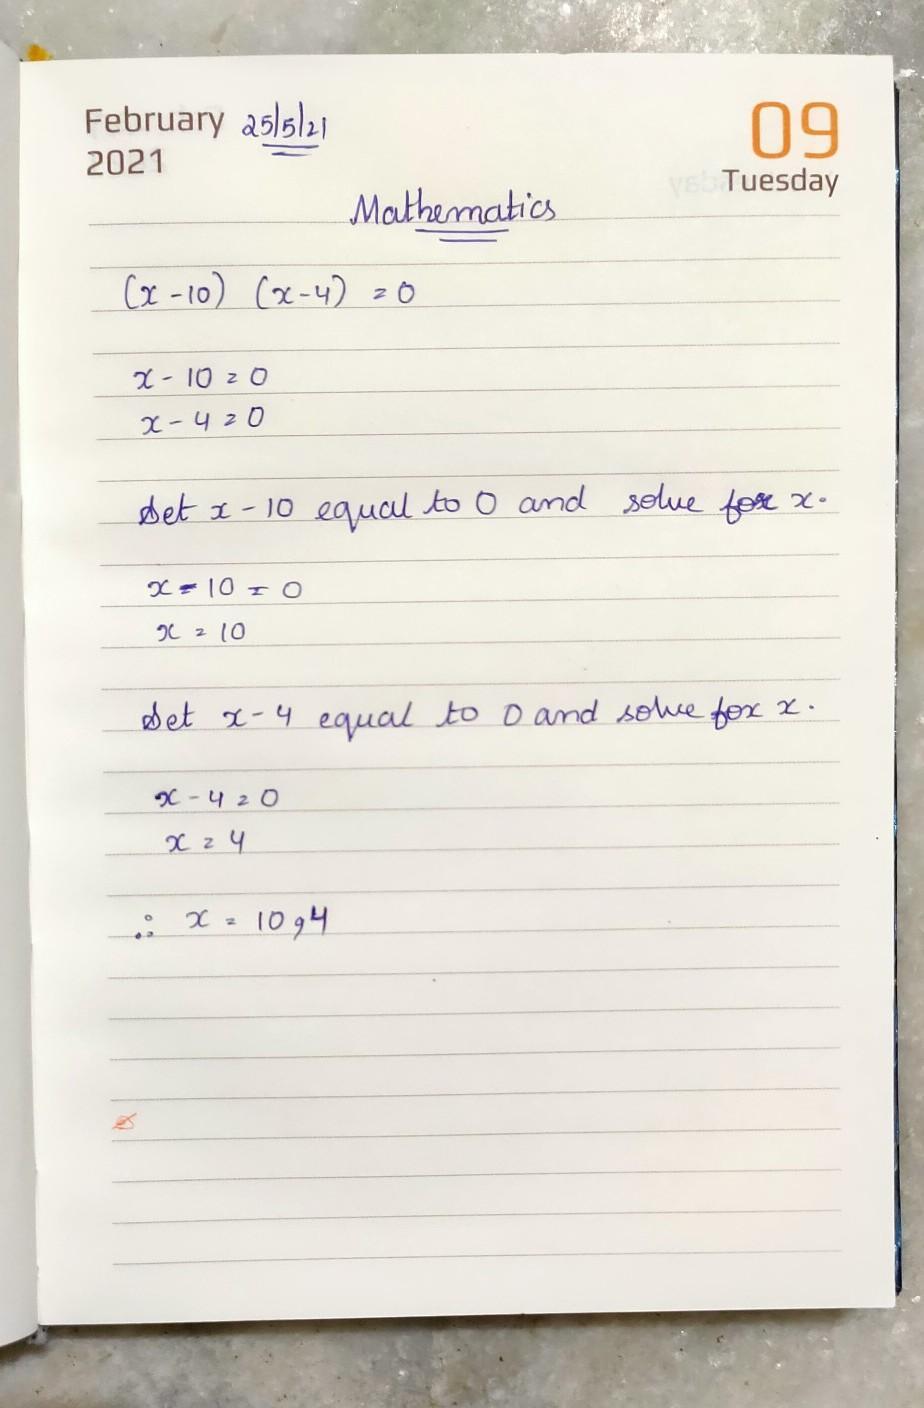 February 25/5/21 09
2021 Tuesday
Mathematics
(x-10) (x-4) = 0
x - 10 = 0
x - 4 = 0
Set x - 10 equal to 0 and solve for x.
x - 10 = 0
x = 10
Set x - 4 equal to 0 and solve for x.
x - 4 = 0
x = 4
∴ x = 10, 4